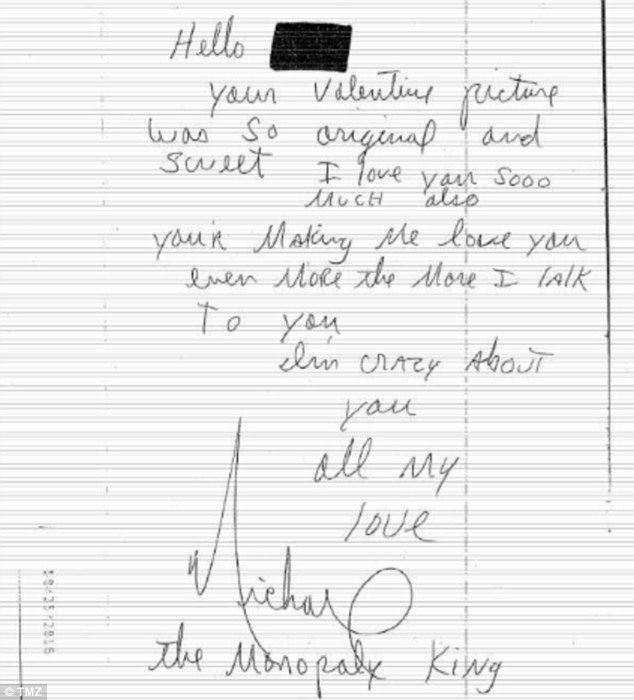 Hello
your Valentine picture
was so original and
sweet I love you sooo
MUCH also
you'r Making Me love you
even More the More I talk
To you,
I'm CRAZY About
you
all my
love
Michael
the Monopoly King
10/25/2016
© TMZ